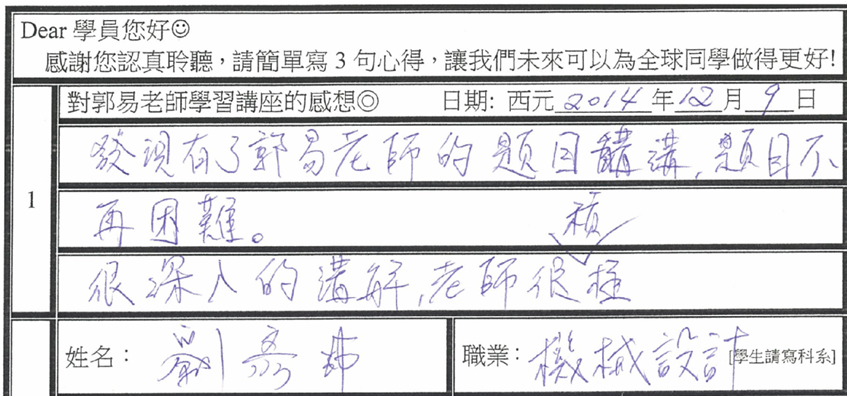 Dear 學員您好☺
感謝您認真聆聽，請簡單寫 3 句心得，讓我們未來可以為全球同學做得更好!
1
對郭易老師學習講座的感想◎ 日期: 西元 2014 年 12 月 9 日
發現有了郭易老師的題目講, 題目不
再困難。
很深入的講解, 老師很積極
姓名： 劉
職業： 機械設計 [學生請寫科系]